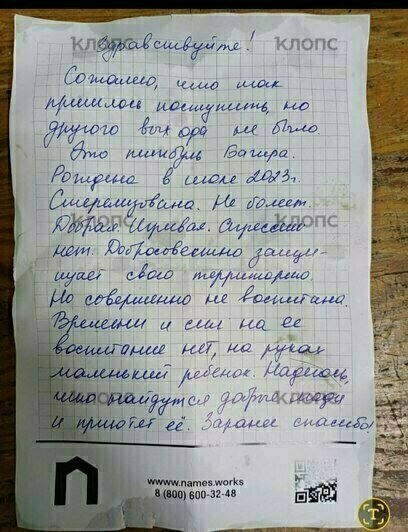 Здравствуйте!
Сожалею, что так
пришлось поступить, но
другого выхода не было.
Это питбуль Багира.
Рождена в июле 2023г.
Стерелизована. Не болеет.
Добрая. Игривая. Агрессии
нет. Добросовестно защи-
щает свою территорию.
Но совершенно не воспитана.
Времени и сил на ее
воспитание нет, на руках
маленький ребенок. Надеюсь,
что найдутся добрые люди
и приютят её. Заранее спасибо!
www.names.works
8 (800) 600-32-48
КЛОПС КЛОПС
КЛОПС КЛОПС
КЛОПС КЛОПС
КЛОПС КЛОПС
КЛОПС КЛОПС